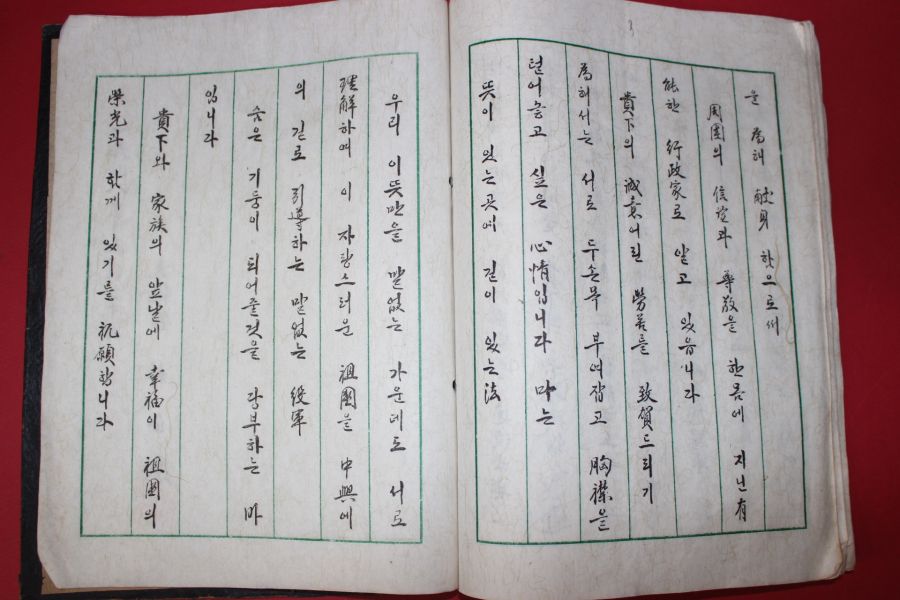 3
을 爲해 献身 함으로써
周圍의 信望과 尊敬을 한몸에 지닌 有
能한 行政家로 알고 있읍니다
貴下의 誠意어린 勞苦를 致賀드리기
爲해서는 서로 두손목 부여잡고 胸襟을
털어놓고 싶은 心情입니다 마는
뜻이 있는곳에 길이 있는法
우리 이뜻만을 말없는 가운데도 서로
理解하여 이 자랑스러운 祖國을 中興에
의 길로 引導하는 말없는 役軍
숨은 기둥이 되어줄것을 당부하는 바
입니다
貴下와 家族의 앞날에 幸福이 祖國의
榮光과 함께 있기를 祝願합니다